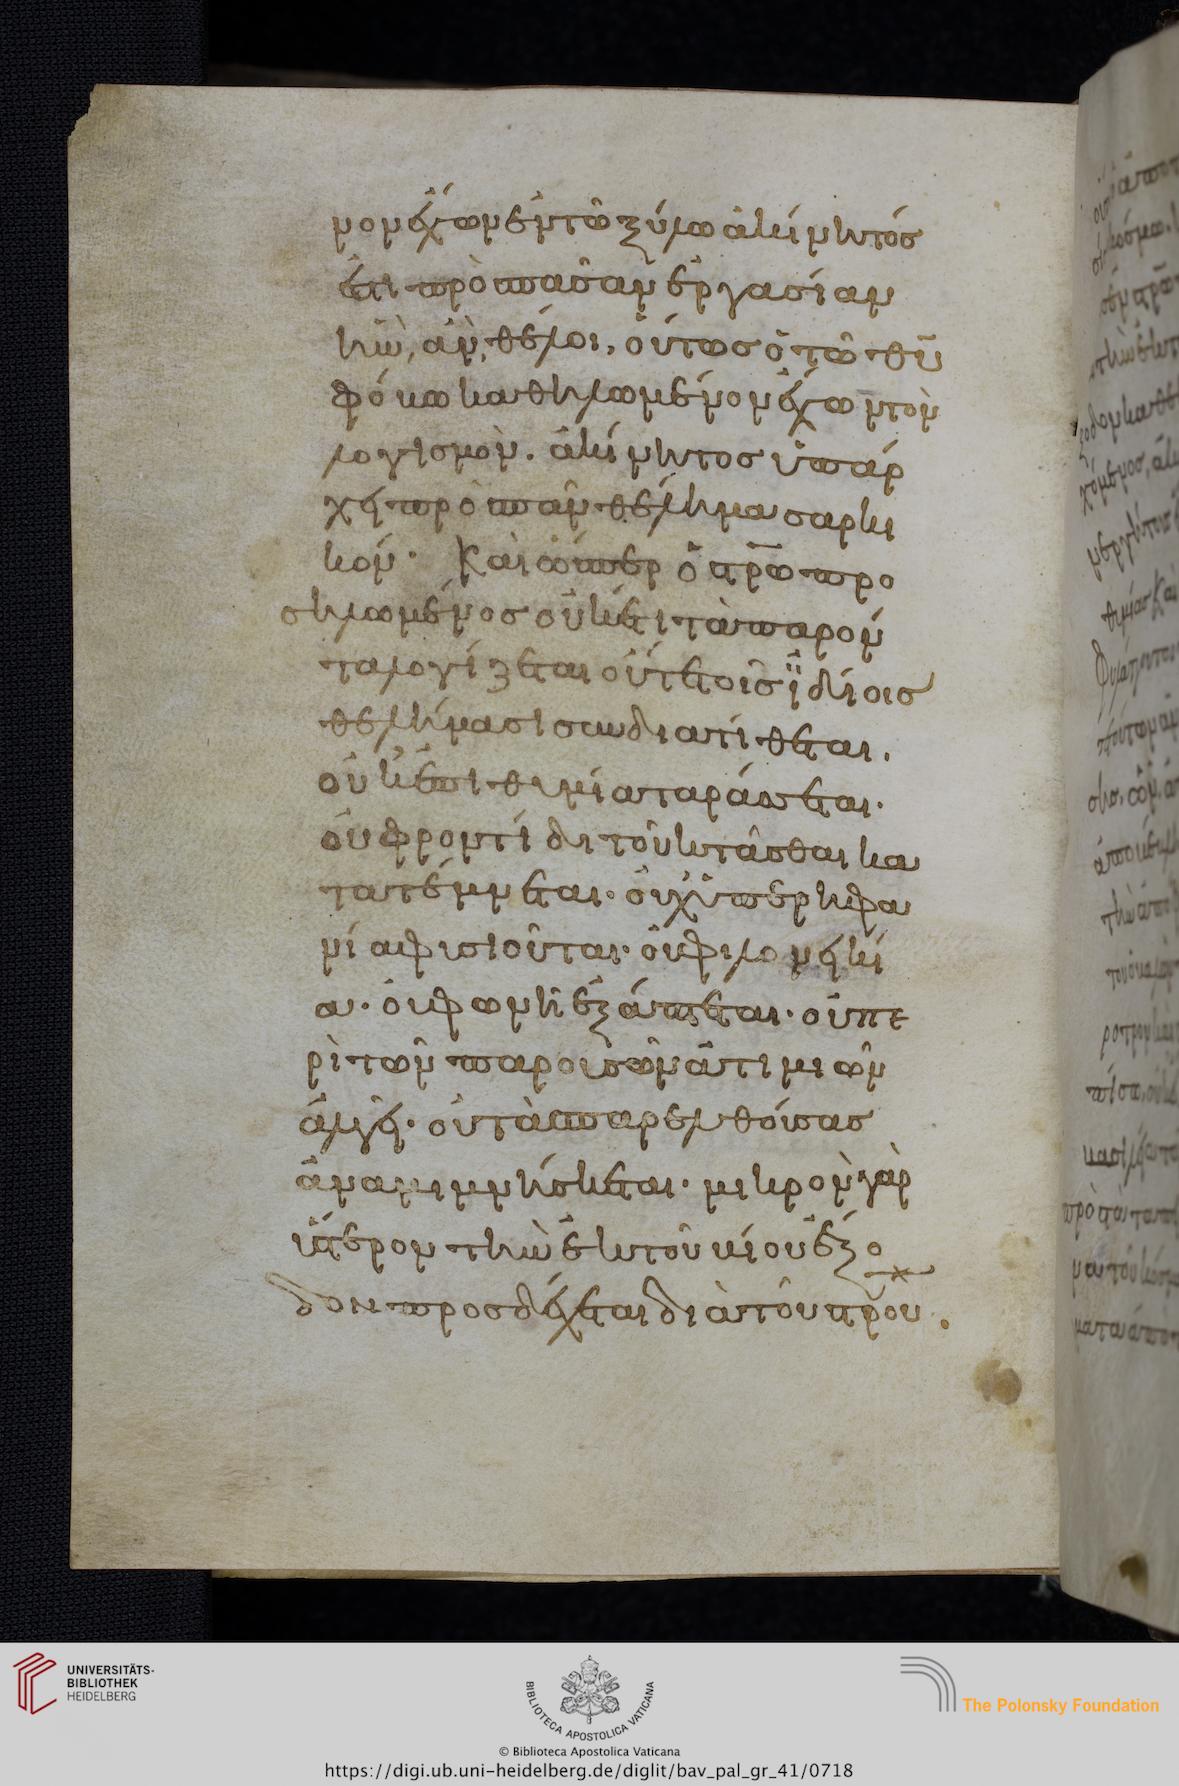 νον ἔχων ἐν τῶ ξύλω ἀκίνητός
ἐστι πρὸς πᾶσαν ἐργασίαν
ἣν ἂν θέλοι, οὕτως ὁ τῶ θ̅υ̅
φόβω καθηλωμένον ἔχων τὸν
λογισμὸν. ἀκίνητος ὑπάρ
χει πρὸς πᾶν θέλημα σαρκι
κόν· Καὶ ὥσπερ ὁ σ̅ρ̅ω̅ προ
σηλωμένος οὐκέτι τὰ παρόν
τα λογίζεται οὔτε τοῖς ἰδίοις
θελήμασι συνδιατίθεται.
οὐκ ἐπιθυμία ταράσσεται.
οὐ φροντίδι τοῦ κτᾶσθαι κα
τατέμνεται. οὐχ ὑπερηφα
νία φυσιοῦται. οὐ φιλονεικί
α. οὐ φωνῆ ἐξάπτεται. οὐ πε
ρὶ τῶν παρουσῶν ἀτιμιῶν
ἀλγεῖ. οὐ τὰς παρελθούσας
ἀναμιμνήσκεται. μικρὸν γὰρ
ὕστερον τὴν ἐκ τοῦ βίου ἔξο
δον προσδέχεται διὰ τοῦ σ̅ρ̅ου.
UNIVERSITÄTS-
BIBLIOTHEK
HEIDELBERG
BIBLIOTECA APOSTOLICA VATICANA
© Biblioteca Apostolica Vaticana
The Polonsky Foundation
https://digi.ub.uni-heidelberg.de/diglit/bav_pal_gr_41/0718